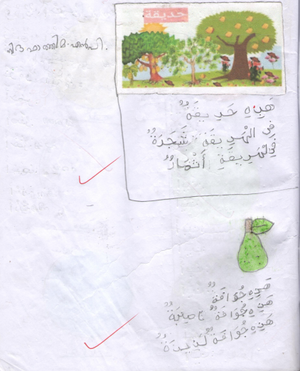 حديقة
هَذِهِ حَدِيقَةٌ
فِي الْحَدِيقَةِ شَجَرَةٌ
فِي الْحَدِيقَةِ أَثْمَارٌ
هَذِهِ جُوَافَةٌ
هَذِهِ جُوَافَةٌ
هَذِهِ جُوَافَةٌ لَذِيذَةٌ